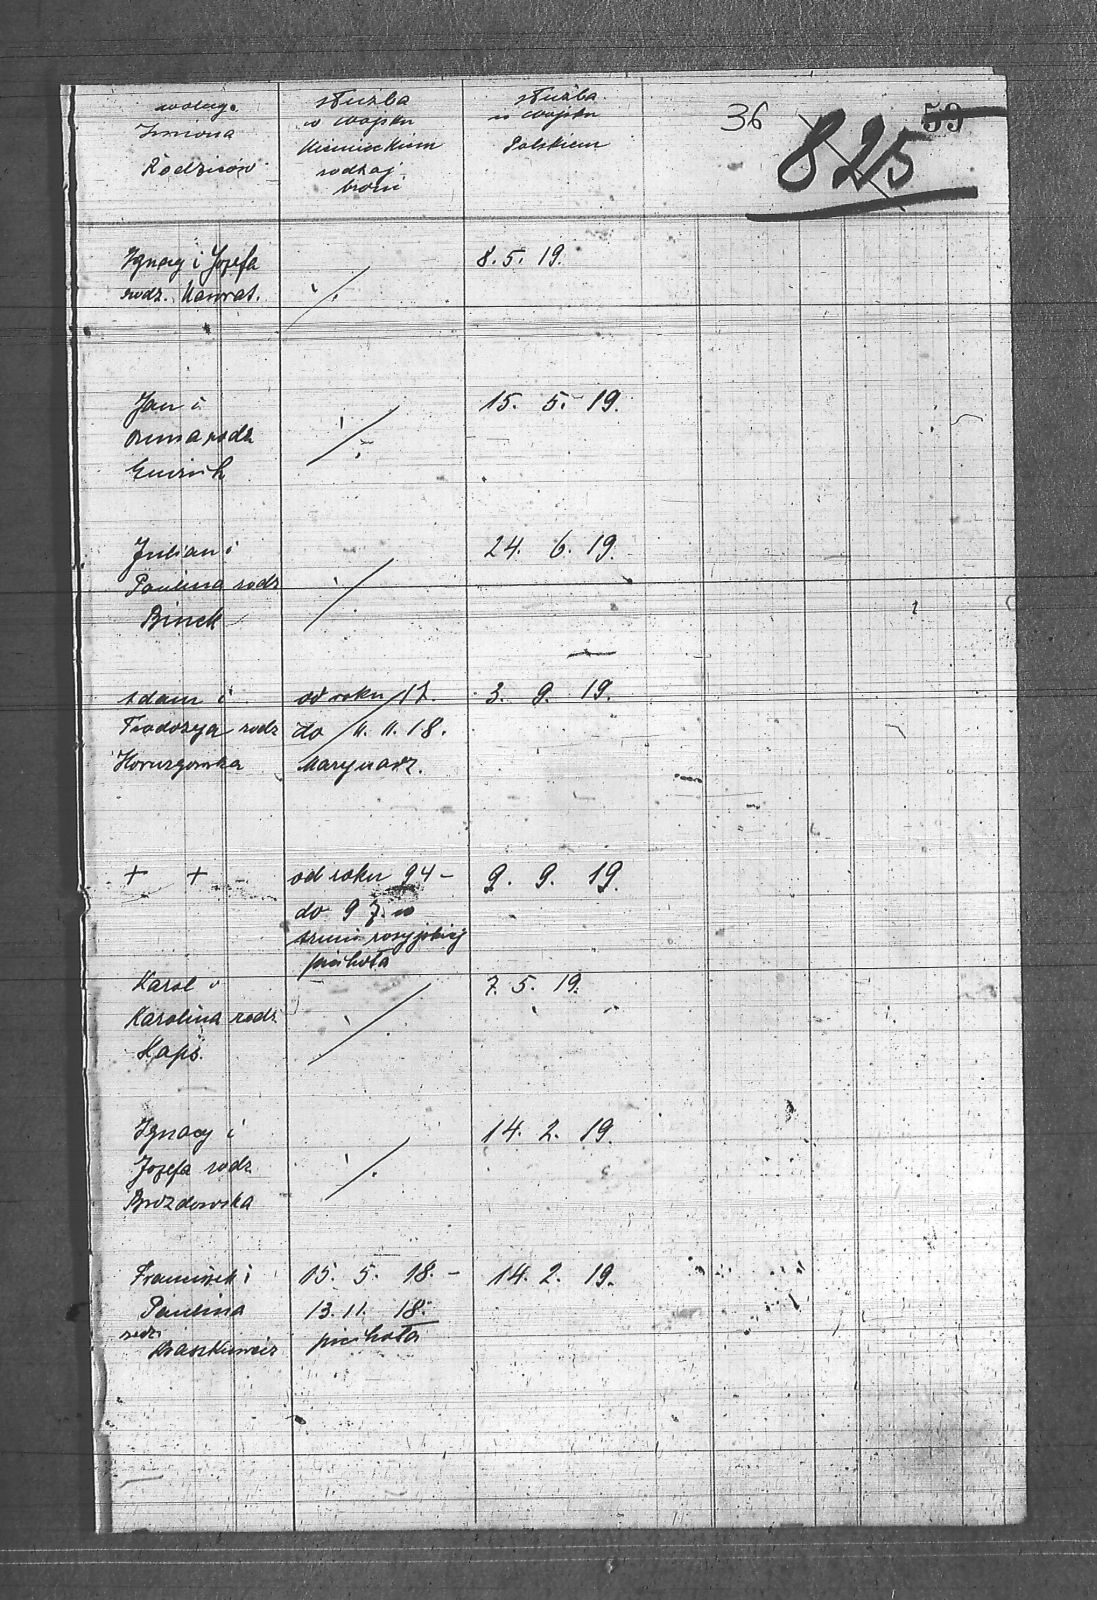 Imiona
Rodziców
służba
w wojsku
niemieckiem
rodzaj
broni
służba
w wojsku
Polskiem
36
825
59
Ignacy i Jozefa
rodz. Nawrat.
8. 5. 19.
Jan i
Anna rodz
15. 5. 19.
Julian i
Paulina rodz
Binek
24. 6. 19.
Adam i
Teodozya rodz
od roku 17.
do 11. 11. 18.
Marynarz.
3. 9. 19.
+ +
od roku 94 -
do 97. w
armii rosyjskiej
piechota
9. 9. 19.
Karol i
Karolina rodz.
Hapś.
7. 5. 19.
Ignacy i
Jozefa rodz
Brozdowska
14. 2. 19.
Franciszek i
Paulina
rodz.
15. 5. 18. -
13. 11. 18.
piechota
14. 2. 19.